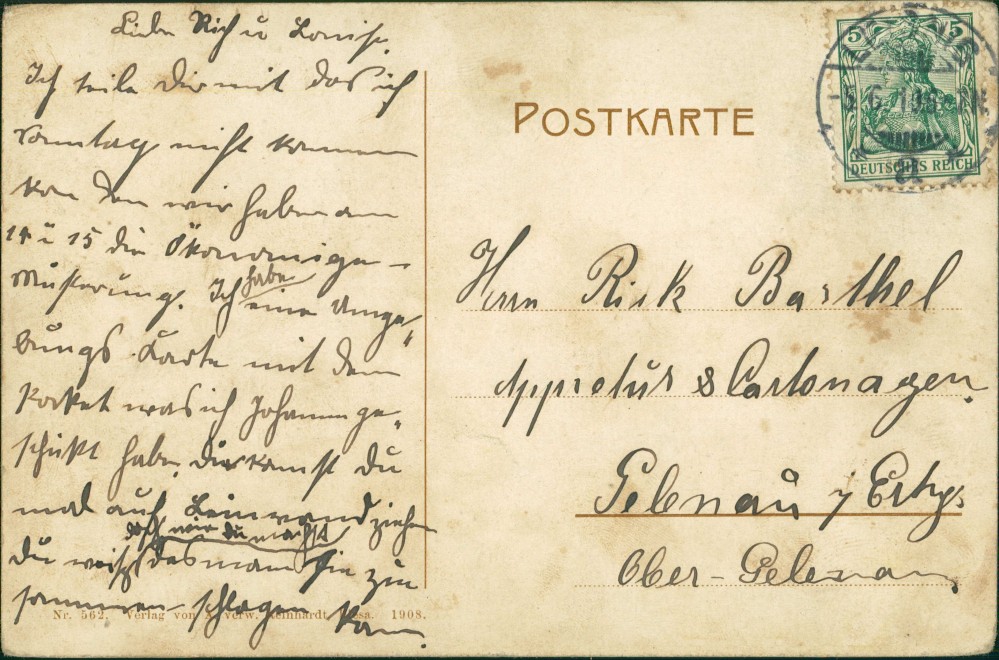 Liebe Rich u Louise.
Ich teile Dir mit das ich
Sonntag nicht kommen
kan den wir haben am
14 u 15 die Ökonomige-
Musterung. Ich habe eine Umge„
bungs Karte mit dem
Packet was ich Johann ge„
schikt habe, die kanst Du
mal auf Leinwand ziehen
doch wie du machst
Du weist das man sie zu
sammen schlagen kan.
Nr. 562. Verlag von verw. Reinhardt, 1908.
POSTKARTE
5 5
DEUTSCHES REICH
5.6.
Herrn Rich Barthel
Appretur & Cartonagen.
Gelenau / Erzgb
Ober-Gelenau.